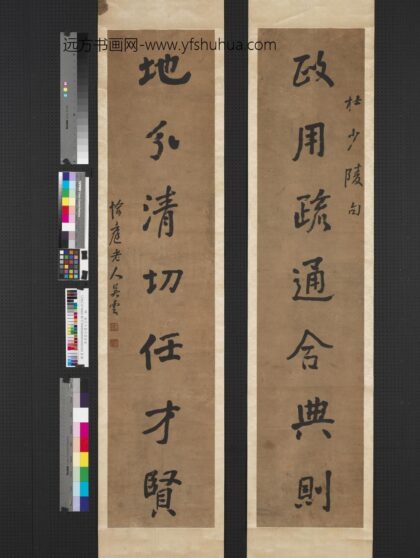 远方书画网-www.yfshuhua.com
杜少陵句
政用疏通合典則
地分清切任才賢
愉庭老人吳雲